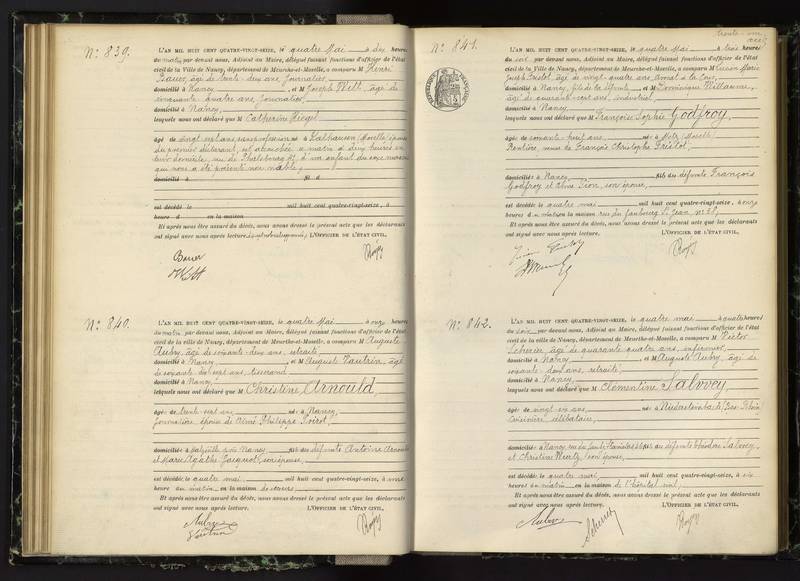 N° 839.
L'AN MIL HUIT CENT QUATRE-VINGT-SEIZE, le quatre Mai à dix heures
du matin par devant nous, Adjoint au Maire, délégué faisant fonctions d'officier de l'état
civil de la Ville de Nancy, département de Meurthe-et-Moselle, a comparu M Henri
Bauer, âgé de trente-deux ans, Journalier
domicilié à Nancy, et M Joseph Witt, âgé de
cinquante quatre ans, Journalier,
domicilié à Nancy,
lesquels nous ont déclaré que M Catherine
âgé de vingt sept ans sans profession né à Kalhausen (Moselle) épouse
du premier déclarant, est accouchée ce matin à deux heures en
leur domicile, rue de Phalsbourg d'un enfant du sexe masculin
qui nous a été présenté non viable,
domicilié à fils d
est décédé le mil huit cent quatre-vingt-seize, à
heure d en la maison
Et après nous être assuré du décès, nous avons dressé le présent acte que les déclarants
ont signé avec nous après lecture. L'OFFICIER DE L'ÉTAT CIVIL,
Bauer
Witt
N° 840.
L'AN MIL HUIT CENT QUATRE-VINGT-SEIZE, le quatre Mai à onze heures
du matin par devant nous, Adjoint au Maire, délégué faisant fonctions d'officier de l'état
civil de la ville de Nancy, département de Meurthe-et-Moselle, a comparu M Auguste
Aubry, âgé de soixante-deux ans, retraité
domicilié à Nancy et M Auguste Vautrin, âgé
de soixante dix sept ans, tisserand
domicilié à Nancy,
lesquels nous ont déclaré que M Christine Arnould,
âgé de trente-sept ans né à Nancy,
Journalière, épouse de Aimé Philippe Poirot,
domicilié à Malzéville près Nancy fils du défunt Antoine Arnould
et Marie Agathe Jacquot, son épouse
est décédé le quatre mai mil huit cent quatre-vingt-seize, à une
heure du matin en la maison de secours,
Et après nous être assuré du décès, nous avons dressé le présent acte que les déclarants
ont signé avec nous après lecture. L'OFFICIER DE L'ÉTAT CIVIL,
Aubry
Vautrin
N° 841.
RÉPUBLIQUE FRANÇAISE
L'AN MIL HUIT CENT QUATRE-VINGT-SEIZE, le quatre Mai à trois heures
du soir par devant nous, Adjoint au Maire, délégué faisant fonctions d'officier de l'état
civil de la Ville de Nancy, département de Meurthe-et-Moselle, a comparu M Lucien Marie
Joseph Pristot, âgé de vingt-quatre ans, avocat à la Cour,
domicilié à Nancy, fils de la défunte et M Dominique Villaume,
âgé de quarante sept ans, industriel,
domicilié à Nancy
lesquels nous ont déclaré que M Françoise Sophie Godfroy,
âgé de soixante huit ans né à Metz (Moselle)
Rentière, veuve de François Christophe Pristot,
domicilié à Nancy fils du défunts François
Godfroy et Anne Sion, son épouse,
est décédé le quatre mai mil huit cent quatre-vingt-seize, à onze
heures du matin en la maison rue du faubourg St Jean n°
Et après nous être assuré du décès, nous avons dressé le présent acte que les déclarants
ont signé avec nous après lecture. L'OFFICIER DE L'ÉTAT CIVIL,
N° 842.
L'AN MIL HUIT CENT QUATRE-VINGT-SEIZE, le quatre mai à quatre heures
du soir par devant nous, Adjoint au Maire, délégué faisant fonctions d'officier de l'état
civil de la ville de Nancy, département de Meurthe-et-Moselle, a comparu M Victor
Scherrer, âgé de quarante quatre ans, infirmier,
domicilié à Nancy et M Auguste Aubry, âgé de
soixante-deux ans, retraité,
domicilié à Nancy,
lesquels nous ont déclaré que M Clémentine Salvvey,
âgé de vingt-six ans né à Niedersteinbach (Bas-Rhin)
Cuisinière, célibataire,
domicilié à Nancy, rue du faub. Stanislas fils du défunt Théodore Salvvey,
et Christine Wurtz, son épouse,
est décédé le quatre mai, mil huit cent quatre-vingt-seize, à six
heures du matin en la maison de l'hôpital civil,
Et après nous être assuré du décès, nous avons dressé le présent acte que les déclarants
ont signé avec nous après lecture. L'OFFICIER DE L'ÉTAT CIVIL,
Aubry
Scherrer